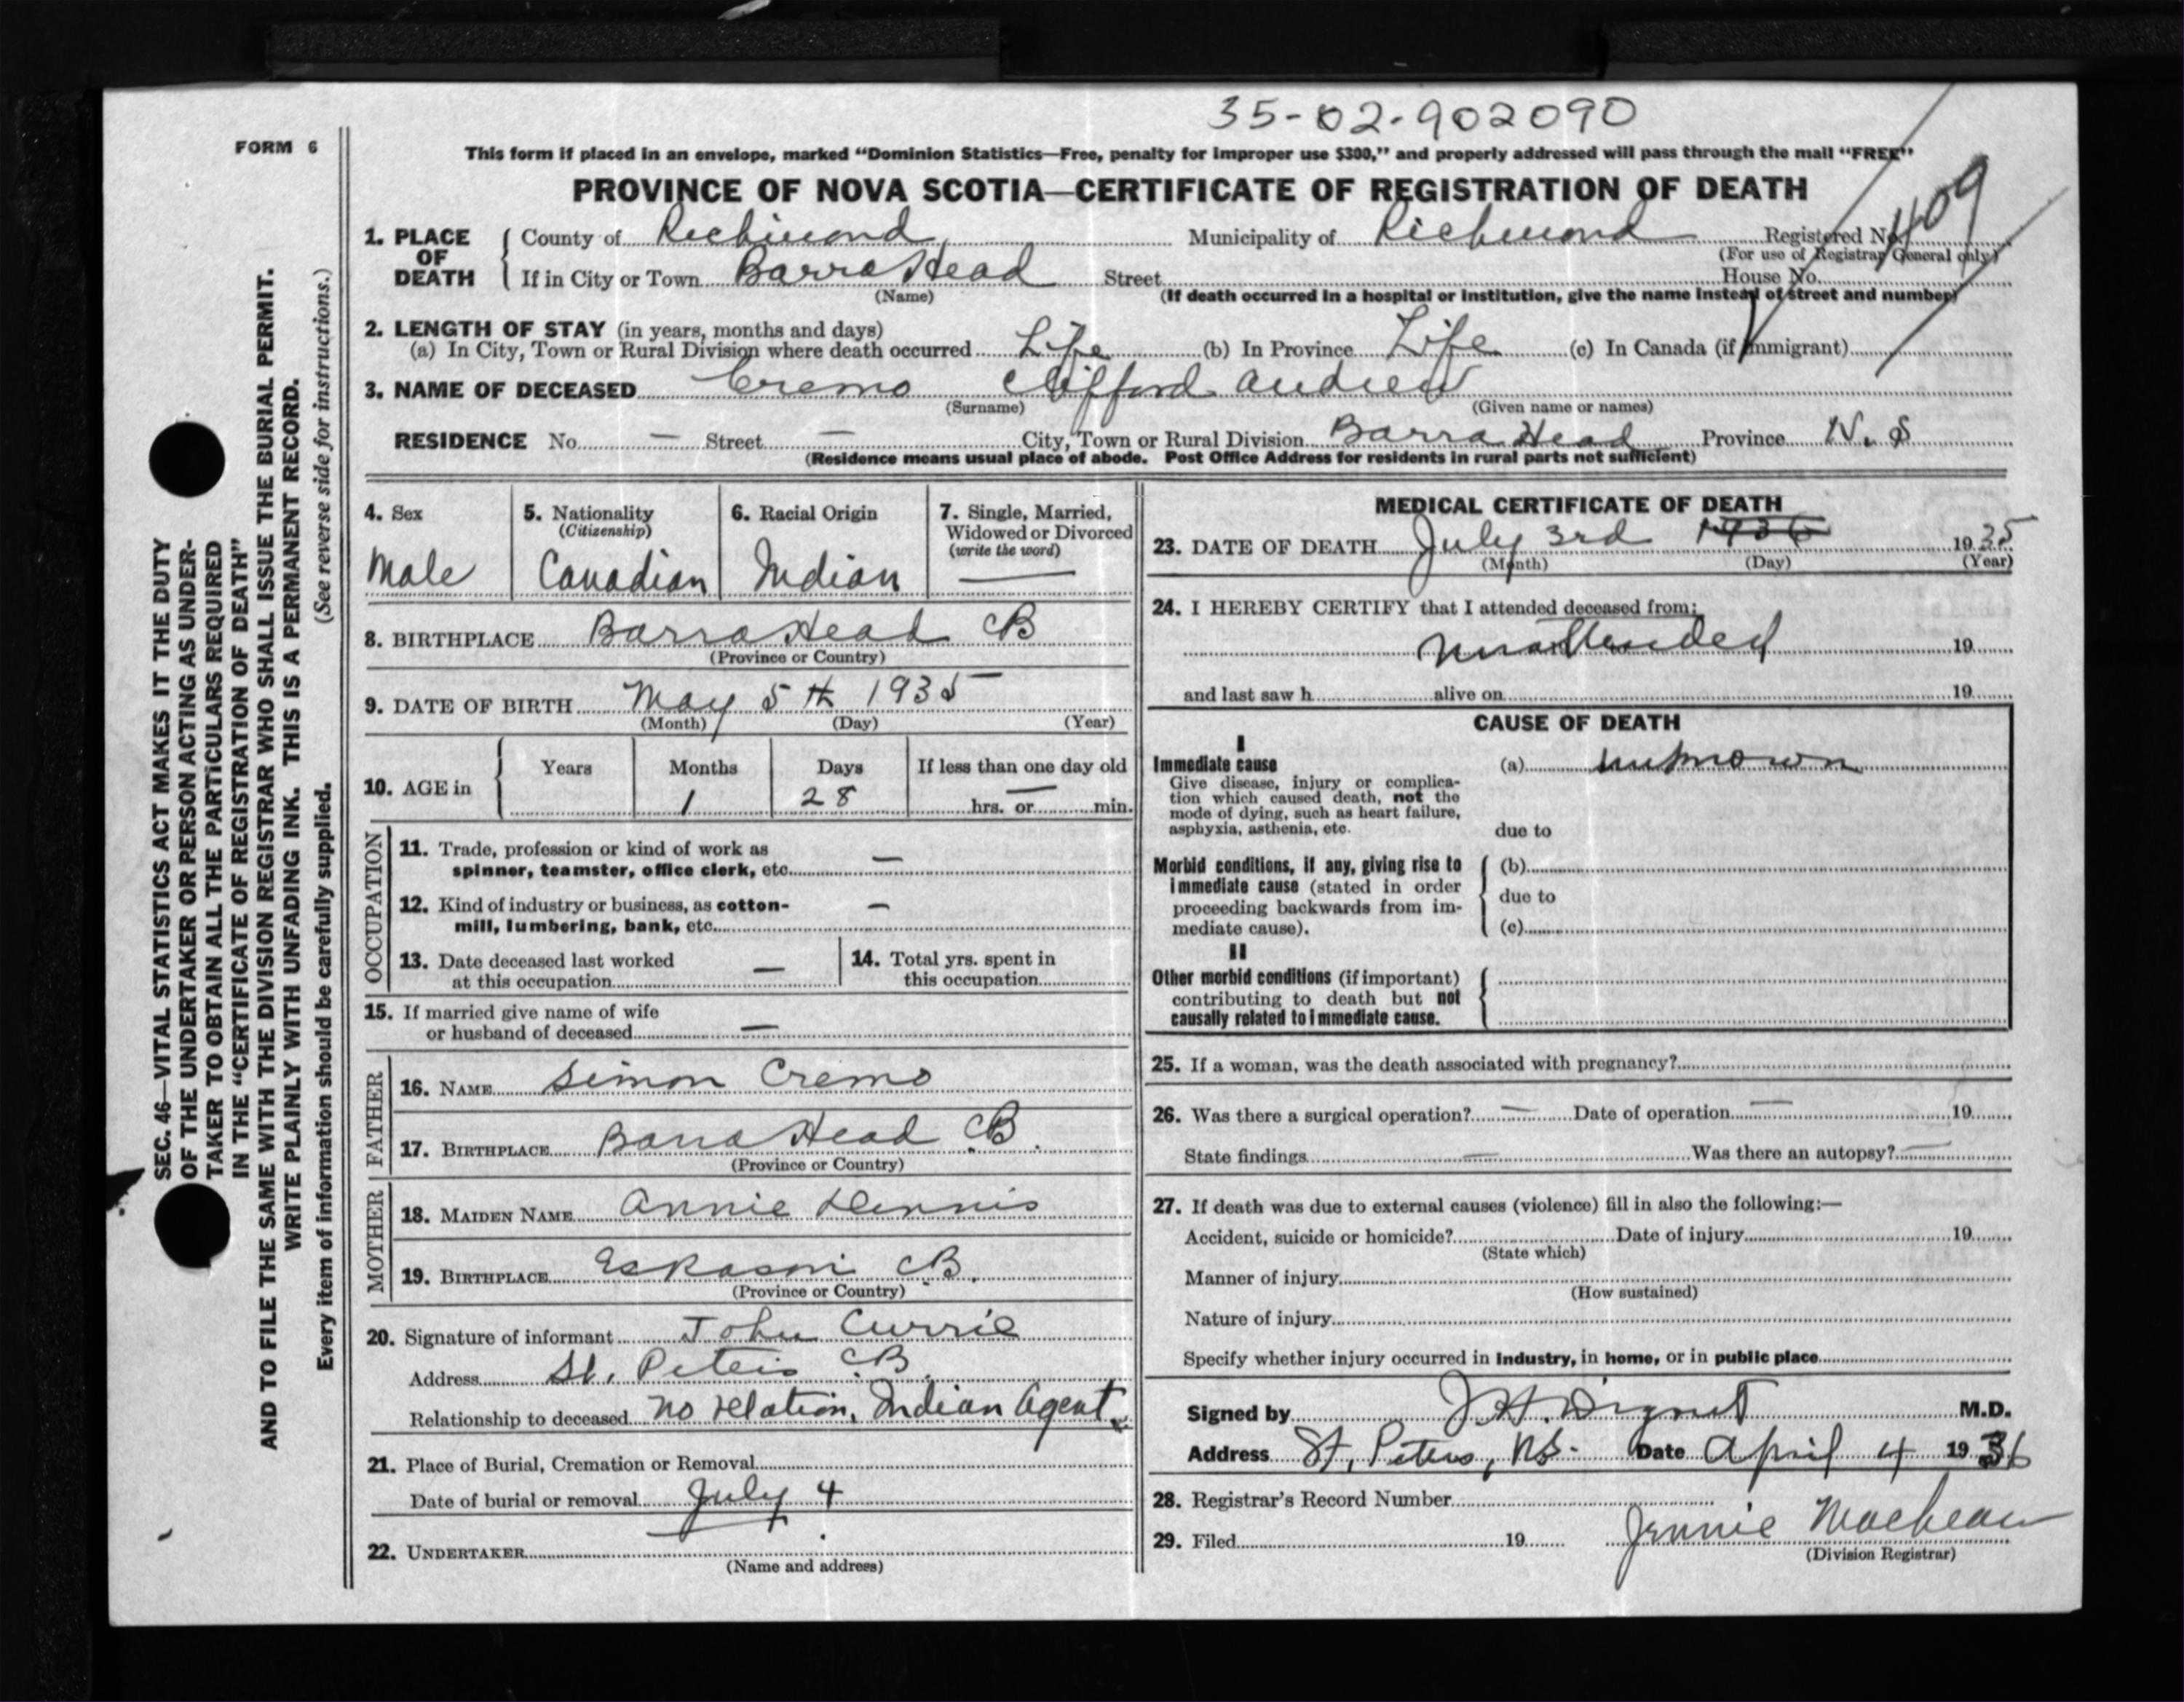 35-02-902090
FORM 6
This form if placed in an envelope, marked “Dominion Statistics—Free, penalty for improper use $300,” and properly addressed will pass through the mail “FREE”
PROVINCE OF NOVA SCOTIA—CERTIFICATE OF REGISTRATION OF DEATH
1. PLACE OF DEATH { County of Richmond Municipality of Richmond Registered No. 1409
(For use of Registrar General only)
If in City or Town Barra Head Street House No.
(Name) (If death occurred in a hospital or institution, give the name instead of street and number)
2. LENGTH OF STAY (in years, months and days)
(a) In City, Town or Rural Division where death occurred Life (b) In Province Life (c) In Canada (if immigrant)
3. NAME OF DECEASED Cremo Clifford Andrew
(Surname) (Given name or names)
RESIDENCE No. — Street — City, Town or Rural Division Barra Head Province N. S
(Residence means usual place of abode. Post Office Address for residents in rural parts not sufficient)
4. Sex Male
5. Nationality (Citizenship) Canadian
6. Racial Origin Indian
7. Single, Married, Widowed or Divorced (write the word) —
8. BIRTHPLACE Barra Head CB
(Province or Country)
9. DATE OF BIRTH May 5th 1935
(Month) (Day) (Year)
10. AGE in { Years Months Days If less than one day old
1 28 — hrs. or min.
OCCUPATION
11. Trade, profession or kind of work as
spinner, teamster, office clerk, etc. —
12. Kind of industry or business, as cotton-
mill, lumbering, bank, etc. —
13. Date deceased last worked
at this occupation —
14. Total yrs. spent in
this occupation
15. If married give name of wife
or husband of deceased —
FATHER
16. NAME Simon Cremo
17. BIRTHPLACE Barra Head CB.
(Province or Country)
MOTHER
18. MAIDEN NAME Annie Dennis
19. BIRTHPLACE Eskasoni CB.
(Province or Country)
20. Signature of informant John Currie
Address St. Peters CB.
Relationship to deceased no relation, Indian Agent.
21. Place of Burial, Cremation or Removal
Date of burial or removal July 4
22. UNDERTAKER
(Name and address)
MEDICAL CERTIFICATE OF DEATH
23. DATE OF DEATH July 3rd 1936 1935
(Month) (Day) (Year)
24. I HEREBY CERTIFY that I attended deceased from:
unattended 19
and last saw h alive on 19
CAUSE OF DEATH
I
Immediate cause (a) unknown
Give disease, injury or complica-
tion which caused death, not the
mode of dying, such as heart failure,
asphyxia, asthenia, etc. due to
Morbid conditions, if any, giving rise to { (b)
immediate cause (stated in order due to
proceeding backwards from im-
mediate cause). (c)
II
Other morbid conditions (if important) {
contributing to death but not
causally related to immediate cause.
25. If a woman, was the death associated with pregnancy?
26. Was there a surgical operation? — Date of operation — 19
State findings — Was there an autopsy? —
27. If death was due to external causes (violence) fill in also the following:—
Accident, suicide or homicide? Date of injury 19
(State which)
Manner of injury
(How sustained)
Nature of injury
Specify whether injury occurred in industry, in home, or in public place
Signed by J.H. M.D.
Address St. Peters, NS. Date April 4 1936
28. Registrar's Record Number
29. Filed 19 Jennie
(Division Registrar)
SEC. 46—VITAL STATISTICS ACT MAKES IT THE DUTY
OF THE UNDERTAKER OR PERSON ACTING AS UNDER-
TAKER TO OBTAIN ALL THE PARTICULARS REQUIRED
IN THE “CERTIFICATE OF REGISTRATION OF DEATH”
AND TO FILE THE SAME WITH THE DIVISION REGISTRAR WHO SHALL ISSUE THE BURIAL PERMIT.
WRITE PLAINLY WITH UNFADING INK. THIS IS A PERMANENT RECORD.
Every item of information should be carefully supplied. (See reverse side for instructions.)